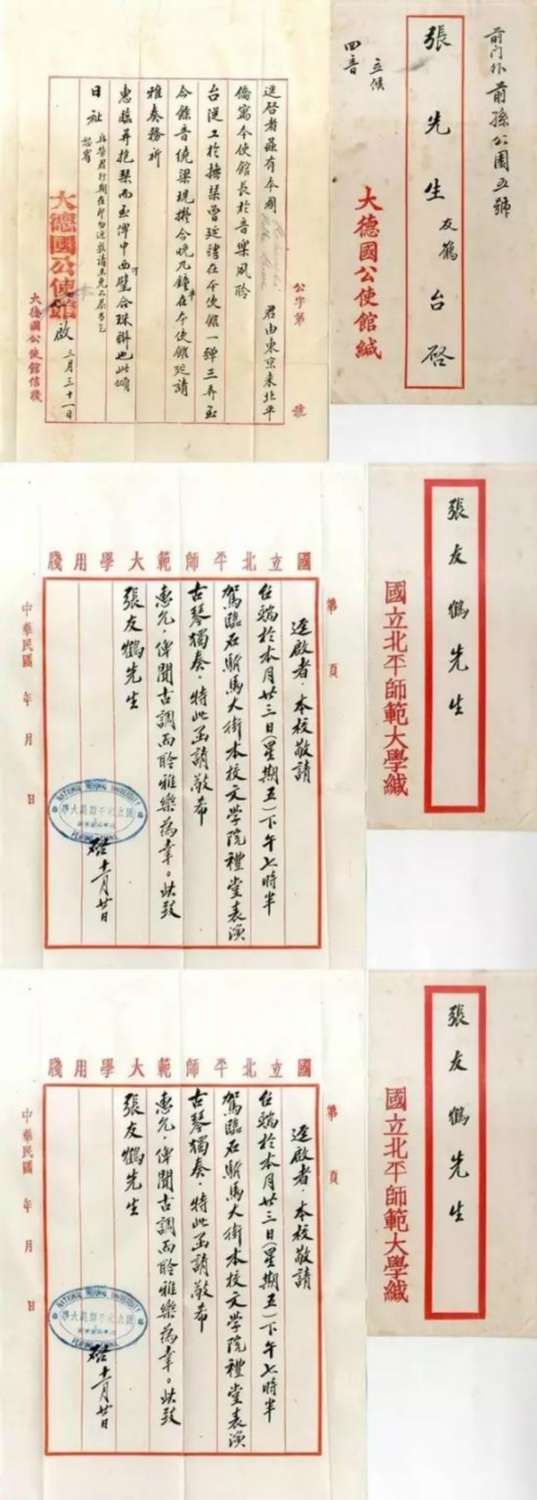 公字第 號
逕啓者茲有本國 君由東京來北平
僑寓本使館長於音樂風聆
台從工於撫琴曾延請在本使館一彈三弄至
今餘音繞梁現擬今晚九鐘半在本使館延請
雅奏務祈
惠臨并抱琴而至俾中西璧合珠聯也此頌
日祉
大德國公使館 啟 三月三十一日
大德國公使館信箋
前门外前孫公園五號
張先生友鶴台啓
立候
回音
大德國公使館緘
國立北平師範大學用牋
第 頁
逕啟者·本校敬請
台端於本月廿三日(星期五)下午七時半
駕臨石駙馬大街本校文學院禮堂表演
古琴獨奏·特此函請敬希
惠允·俾聞古調而聆雅樂為幸。此致
張友鶴先生
NATIONAL NORMAL UNIVERSITY
國立北平師範大學
PEIPING CHINA
啓 十一月廿日
中華民國 年 月 日
張友鶴先生
國立北平師範大學緘
國立北平師範大學用牋
第 頁
逕啟者·本校敬請
台端於本月廿三日(星期五)下午七時半
駕臨石駙馬大街本校文學院禮堂表演
古琴獨奏·特此函請敬希
惠允·俾聞古調而聆雅樂為幸。此致
張友鶴先生
NATIONAL NORMAL UNIVERSITY
國立北平師範大學
PEIPING CHINA
啓 十一月廿日
中華民國 年 月 日
張友鶴先生
國立北平師範大學緘